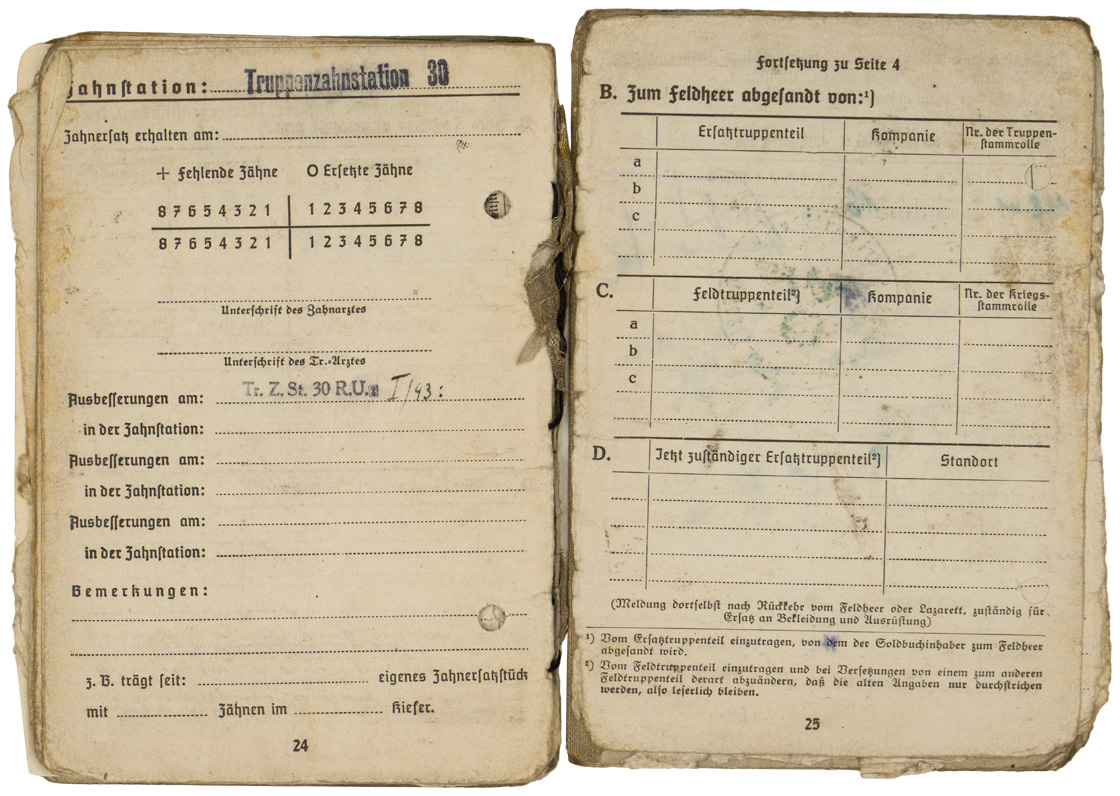 Zahnstation: Truppenzahnstation 30
Zahnersatz erhalten am:
+ Fehlende Zähne O Ersetzte Zähne
8 7 6 5 4 3 2 1 1 2 3 4 5 6 7 8
8 7 6 5 4 3 2 1 1 2 3 4 5 6 7 8
Unterschrift des Zahnarztes
Unterschrift des Tr.-Arztes
Tr. Z. St. 30 R.U. I/43:
Ausbesserungen am:
in der Zahnstation:
Ausbesserungen am:
in der Zahnstation:
Ausbesserungen am:
in der Zahnstation:
Bemerkungen:
z. B. trägt seit: eigenes Zahnersatzstück
mit Zähnen im Kiefer.
24
Fortsetzung zu Seite 4
B. Zum Feldheer abgesandt von:¹)
Ersatztruppenteil Kompanie Nr. der Truppen-
stammrolle
a
b
c
C. Feldtruppenteil²) Kompanie Nr. der Kriegs-
stammrolle
a
b
c
D. Jetzt zuständiger Ersatztruppenteil²) Standort
(Meldung dortselbst nach Rückkehr vom Feldheer oder Lazarett, zuständig für
Ersatz an Bekleidung und Ausrüstung)
¹) Vom Ersatztruppenteil einzutragen, von dem der Soldbuchinhaber zum Feldheer
abgesandt wird.
²) Vom Feldtruppenteil einzutragen und bei Versetzungen von einem zum anderen
Feldtruppenteil derart abzuändern, daß die alten Angaben nur durchstrichen
werden, also leserlich bleiben.
25